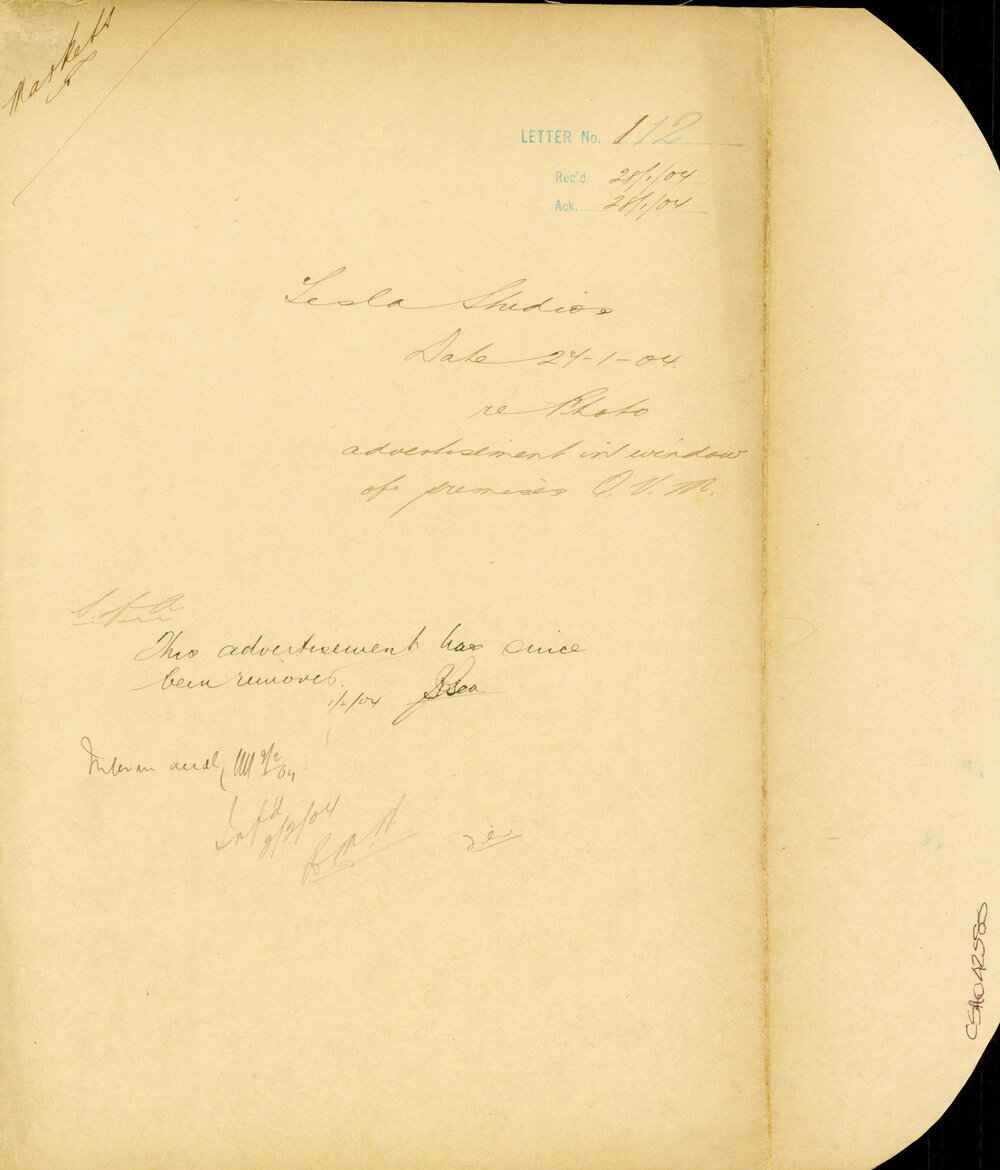 Markets
LETTER No. 112
Rec'd 28/1/04
Ack. 28/1/04
Tesla Studios
Date 27-1-04.
re Photo
advertisement in window
of premises Q. V. M.
This advertisement has since
been removed.
1/2/04
Inform accdly 9/2/04
Infd 9/2/04